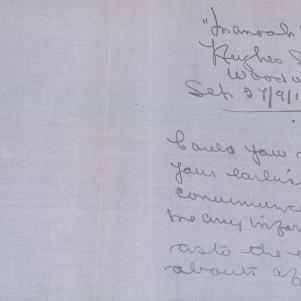 "Inanoah"
Hughes S
Wood
Sep 27/9/1
Could you
your earlies
communica
me any infor
as to the
abouts of